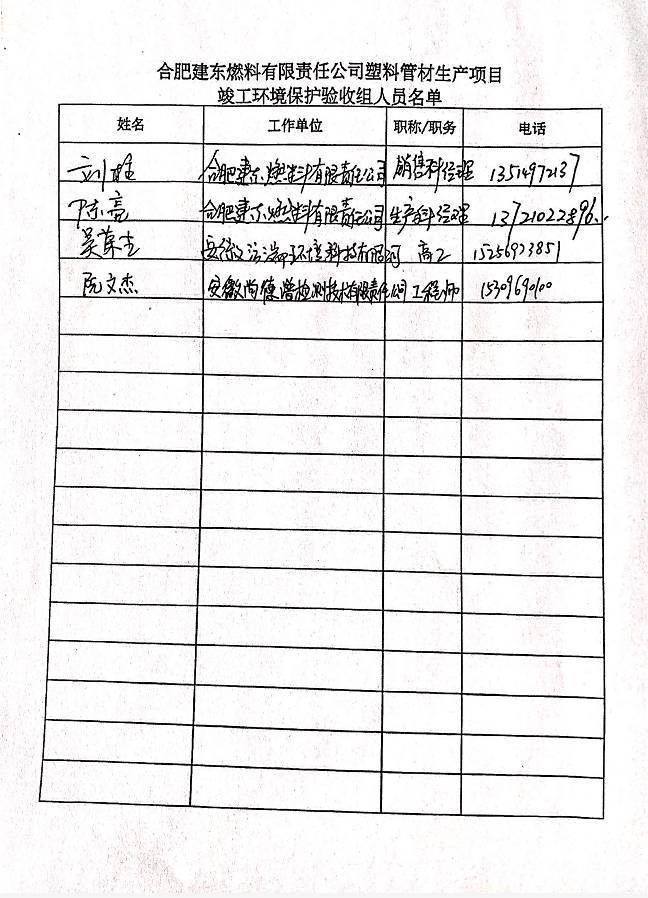 合肥建东燃料有限责任公司塑料管材生产项目
竣工环境保护验收组人员名单
姓名 工作单位 职称/职务 电话
刘雄 合肥建东燃料有限责任公司 销售科经理 13514972137
陈亮 合肥建东燃料有限责任公司 生产科经理 13721022896
吴 安徽 环境科技有限公司 高工 15256923851
阮文杰 安徽尚德谱检测技术有限责任公司 工程师